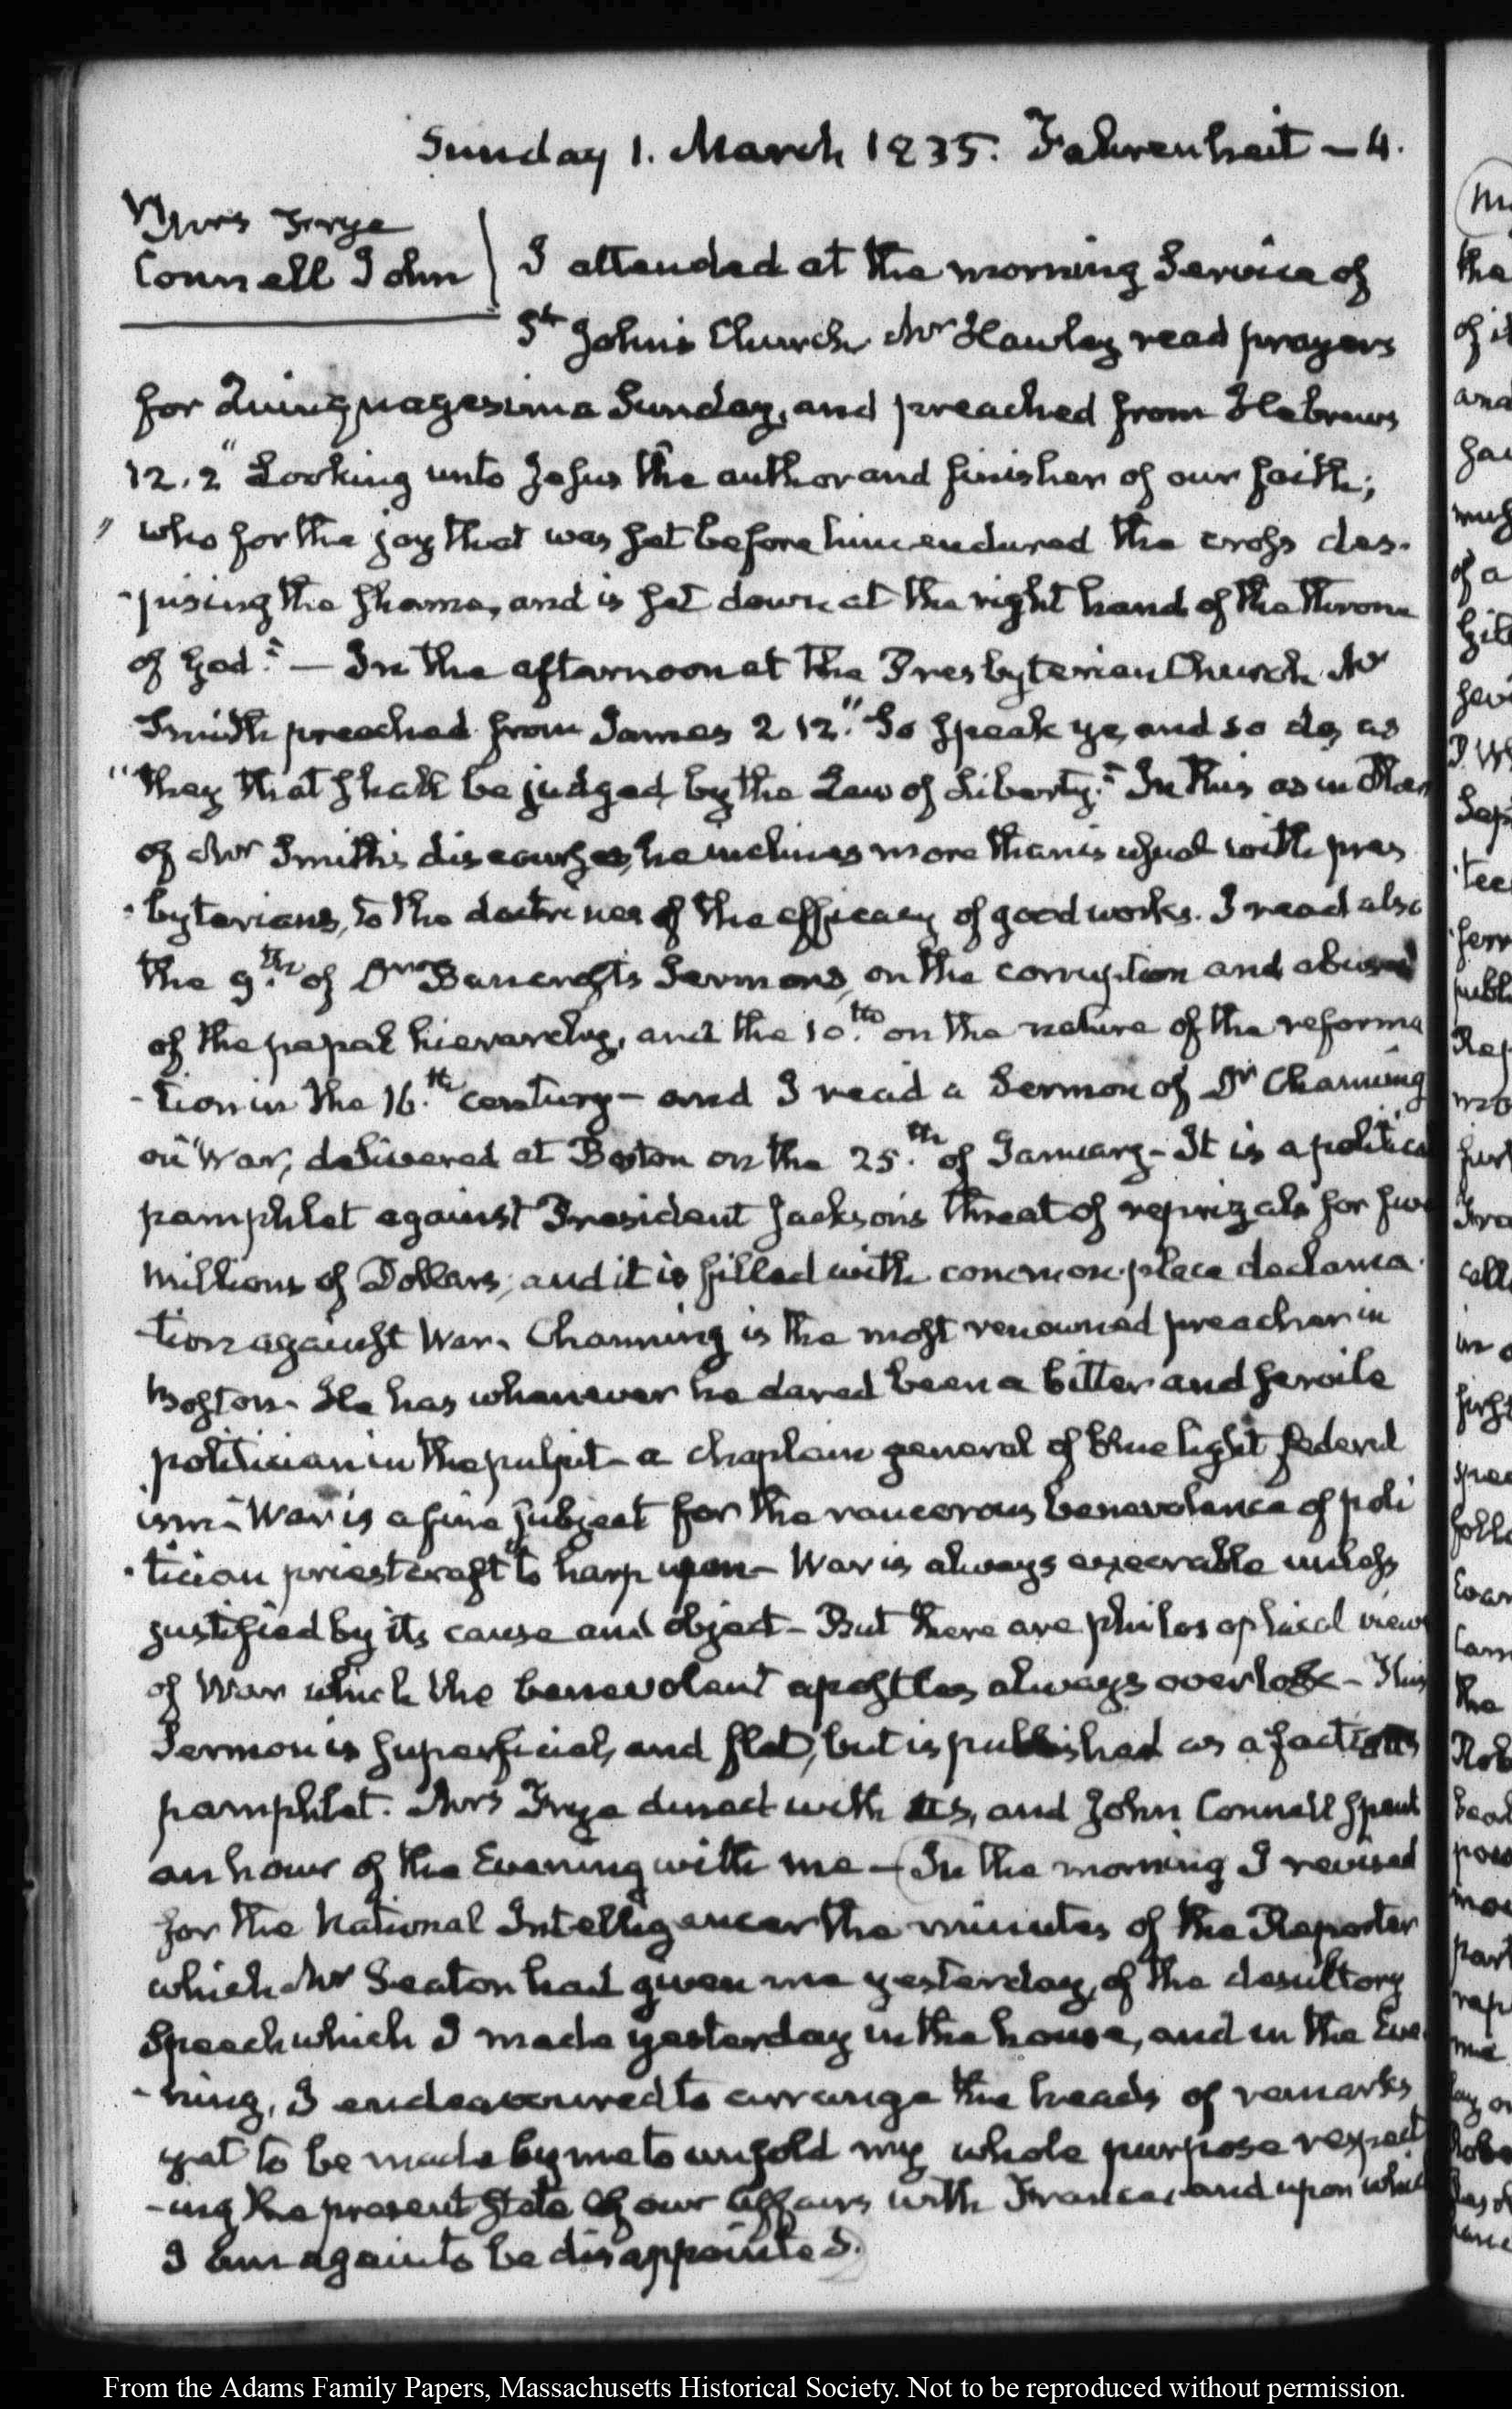 Sunday 1. March 1835. Fahrenheit - 4.
Mrs Frye
Connell John
I attended at the morning Service of
St. John's Church Mr Hawley read prayers
for Quinquagesima Sunday, and preached from Hebrews
12. 2 "Looking unto Jesus the author and finisher of our faith;
" who for the joy that was set before him endured the cross des-
-pising the shame, and is set down at the right hand of the throne
of God." — In the afternoon at the Presbyterian Church Mr
Smith preached from James 2 12. "So speak ye, and so do, as
"they that shall be judged, by the Law of Liberty." In this as in other
of Mr Smith's discourses, he inclines more than is usual with pres
-byterians, to the doctrines of the efficacy of good works. I read also
the 9.th of Dr Bancroft's Sermons, on the corruption and abuses
of the papal hierarchy, and the 10.th on the nature of the reforma
-tion in the 16.th century - and I read a Sermon of Dr Channing
on War, delivered at Boston on the 25.th of January - It is a political
pamphlet against President Jackson's threat of reprizals for five
millions of Dollars, and it is filled with common-place declama-
-tion against War. Channing is the most renowned preacher in
Boston. He has whenever he dared been a bitter and servile
politician in the pulpit - a chaplain general of blue light federal
ism - War is a fine subject for the rancorous benevolence of poli
-tician priestcraft to harp upon - War is always execrable unless
justified by its cause and object - But there are philosophical views
of War which the benevolent apostles always overlook - This
Sermon is superficial, and flat, but is published as a factious
pamphlet. Mrs Frye dined with us, and John Connell spent
an hour of the Evening with me - In the morning I revised
for the National Intelligencer the minutes of the Reporter
which Mr Seaton had given me yesterday, of the desultory
Speech which I made yesterday in the house, and in the Eve-
-ning, I endeavoured to arrange the heads of remarks
yet to be made by me to unfold my whole purpose respect
-ing the present state of our affairs with France, and upon which
I am again to be disappointed.
the
of it
and
of a
From the Adams Family Papers, Massachusetts Historical Society. Not to be reproduced without permission.